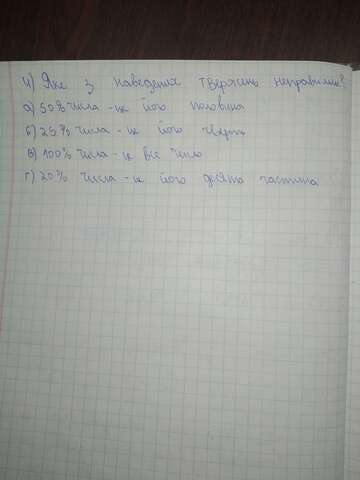 4) Яке з наведених тверджень неправильне?
а) 50% числа - це його половина
б) 25% числа - це його чверть
в) 100% числа - це все число
г) 20% числа - це його десята частина